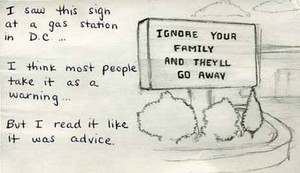 I saw this sign
at a gas station
in D.C ...
I think most people
take it as a
warning ...
But I read it like
it was advice.
IGNORE YOUR
FAMILY
AND THEY'LL
GO AWAY